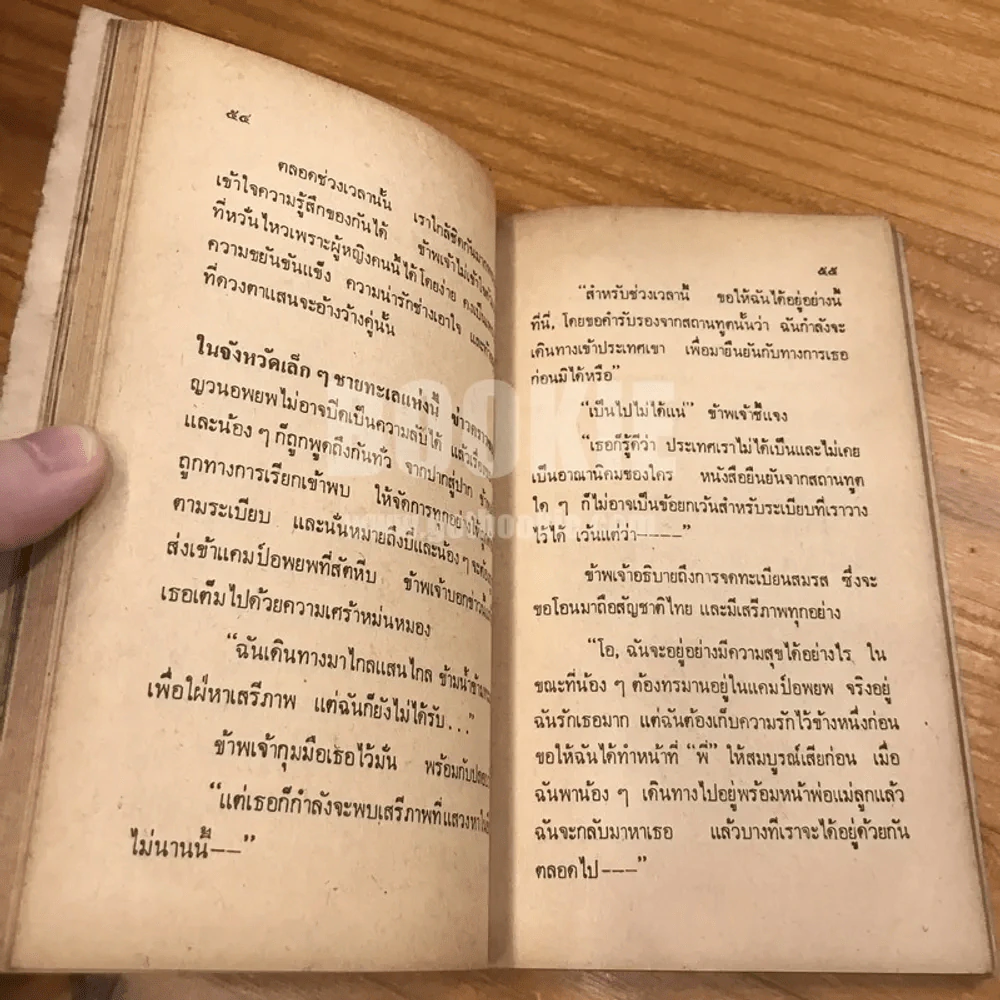 ๕๔
ตลอดช่วงเวลานั้น เราใกล้ชิดกันมาก
เข้าใจความรู้สึกของกันได้ ข้าพเจ้าไม่เข้าใจ
ที่หวั่นไหวเพราะผู้หญิงคนนี้ได้โดยง่าย คงเป็น
ความขยันขันแข็ง ความน่ารักช่างเอาใจ และ
ที่ดวงตาแสนจะอ้างว้างคู่นั้น
ในจังหวัดเล็ก ๆ ชายทะเลแห่งนี้ ข่าวคราว
ญวนอพยพไม่อาจปิดเป็นความลับได้ แล้วเรื่อง
และน้อง ๆ ก็ถูกพูดถึงกันทั่ว จากปากสู่ปาก
ถูกทางการเรียกเข้าพบ ให้จัดการทุกอย่างให้
ตามระเบียบ และนั่นหมายถึงบี่และน้อง ๆ จะต้อง
ส่งเข้าแคมป์อพยพที่สัตหีบ ข้าพเจ้าบอกข่าว
เธอเต็มไปด้วยความเศร้าหม่นหมอง
“ฉันเดินทางมาไกลแสนไกล ข้ามน้ำข้าม
เพื่อใฝ่หาเสรีภาพ แต่ฉันก็ยังไม่ได้รับ...”
ข้าพเจ้ากุมมือเธอไว้มั่น พร้อมกับ
“แต่เธอก็กำลังจะพบเสรีภาพที่แสวงหา
ไม่นานนี้--”
๕๕
“สำหรับช่วงเวลานี้ ขอให้ฉันได้อยู่อย่างนี้
ที่นี่, โดยขอคำรับรองจากสถานทูตนั้นว่า ฉันกำลังจะ
เดินทางเข้าประเทศเขา เพื่อมายืนยันกับทางการเธอ
ก่อนมิได้หรือ”
“เป็นไปไม่ได้แน่” ข้าพเจ้าชี้แจง
“เธอก็รู้ดีว่า ประเทศเราไม่ได้เป็นและไม่เคย
เป็นอาณานิคมของใคร หนังสือยืนยันจากสถานทูต
ใด ๆ ก็ไม่อาจเป็นข้อยกเว้นสำหรับระเบียบที่เราวาง
ไว้ได้ เว้นแต่ว่า----
ข้าพเจ้าอธิบายถึงการจดทะเบียนสมรส ซึ่งจะ
ขอโอนมาถือสัญชาติไทย และมีเสรีภาพทุกอย่าง
“โอ, ฉันจะอยู่อย่างมีความสุขได้อย่างไร ใน
ขณะที่น้อง ๆ ต้องทรมานอยู่ในแคมป์อพยพ จริงอยู่
ฉันรักเธอมาก แต่ฉันต้องเก็บความรักไว้ข้างหนึ่งก่อน
ขอให้ฉันได้ทำหน้าที่ “พี่” ให้สมบูรณ์เสียก่อน เมื่อ
ฉันพาน้อง ๆ เดินทางไปอยู่พร้อมหน้าพ่อแม่ลูกแล้ว
ฉันจะกลับมาหาเธอ แล้วบางทีเราจะได้อยู่ด้วยกัน
ตลอดไป---”